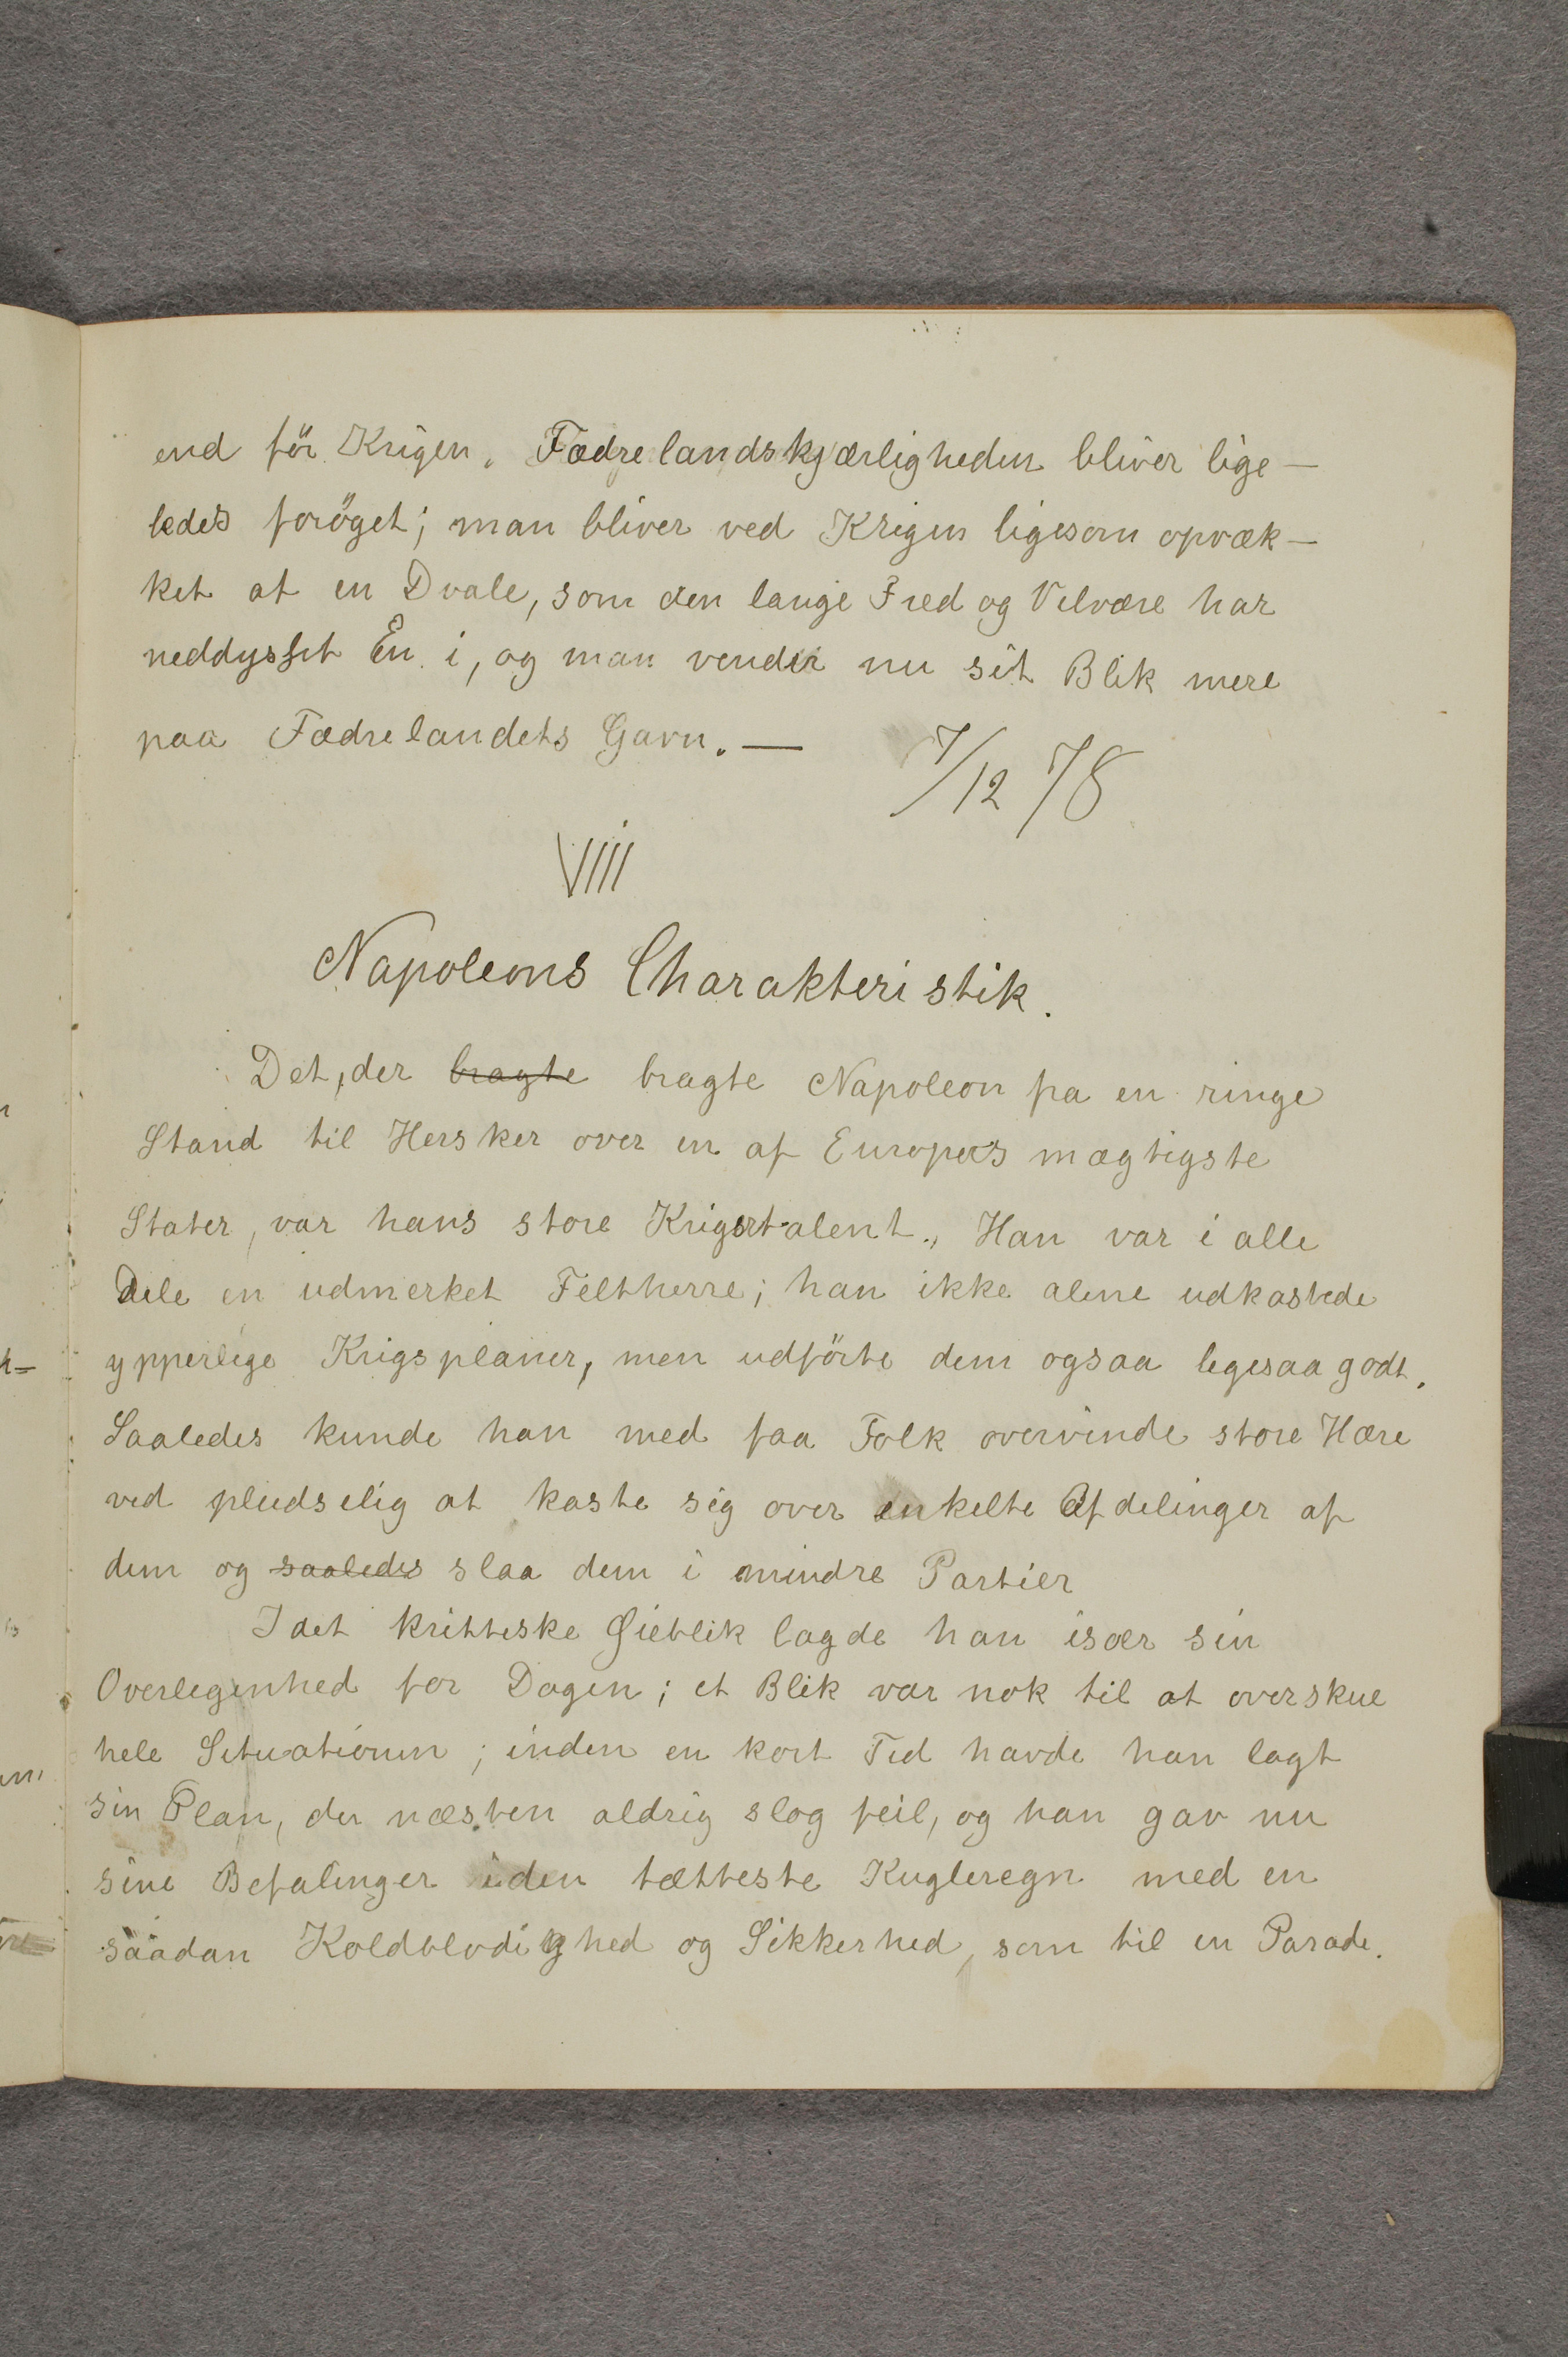 end för Krigen. Fædrelandskjærligheden bliver lige-
ledes foröget; man bliver ved Krigen ligesom opvæk-
ket af en Dvale, som den lange Fred og Velvære har
neddysset En i, og man vender nu sit Blik mere
paa Fædrelandets Gavn. —
7/12 78
VIII
Napoleons Charakteristik.
Det, der bragte bragte Napoleon fra en ringe
Stand til Hersker over en af Europas mægtigste
Stater, var hans store Krigstalent. Han var i alle
Dele en udmerket Feltherre; han ikke alene udkastede
ypperlige Krigsplaner, men udförte dem ogsaa ligesaa godt.
Saaledes kunde han med faa Folk overvinde store Hære
ved pludselig at kaste sig over enkelte Afdelinger af
dem og saaledes slaa dem i mindre Partier
I det krittiske Øieblik lagde han især sin
Overlegenhed for Dagen; et Blik var nok til at overskue
hele Situationen; inden en kort Tid havde han lagt
sin Plan, der næsten aldrig slog feil, og han gav nu
sine Befalinger i den tætteste Kugleregn med en
saadan Koldblodighed og Sikkerhed, som til en Parade.